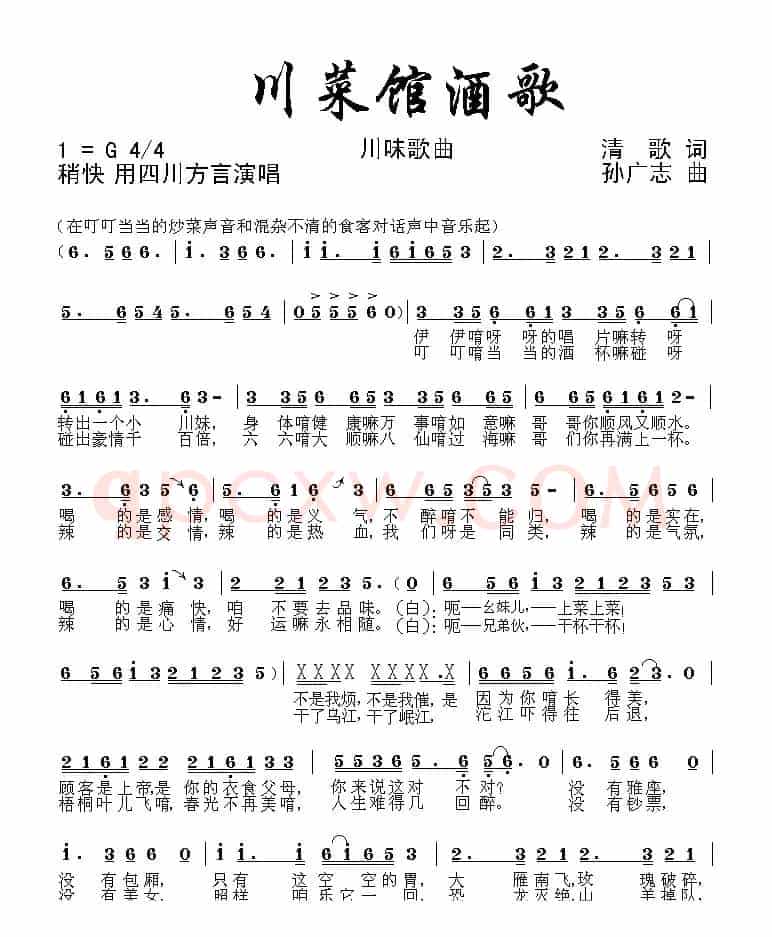 川菜馆酒歌
1 = G 4/4 川味歌曲 清 歌 词
稍快 用四川方言演唱 孙广志 曲
(在叮叮当当的炒菜声音和混杂不清的食客对话声中音乐起)
(6. 566. | i. 366. | i i. i 6i653 | 2. 321 2. 321 |
5. 654 5. 654 | 05550) | 3 356 6613 356 61 |
伊 伊唷呀 呀的唱 片嘛转 呀
叮 叮唷当 当的酒 杯嘛碰 呀
61613. 63- | 3 356 6613 356 6613 | 6656161 2- |
转出一个小 川妹, 身 体唷健 康嘛万 事唷如 意嘛 哥 哥你顺风又顺水。
碰出豪情千 百倍, 六 六唷大 顺嘛八 仙唷过 海嘛 哥 们你再满上一杯。
3. 6356 | 5. 616 3 | 6 65353 35- | 6. 5656 |
喝 的是感 情, 喝 的是义 气, 不 醉唷不 能归, 喝 的是实在,
辣 的是交 情, 辣 的是热 血, 我 们呀是 同类, 辣 的是气氛,
apexw.COM
6. 53i 3 | 2 2 21 235. (0 | 6 656i3 212353 |
喝 的是痛 快, 咱 不 要去品味。(白): 呃——幺妹儿,——上菜上菜!
辣 的是心 情, 好 运嘛永相随。(白): 呃——兄弟伙,——干杯干杯!
6 56i3 21235) | XXXX XXXX.X | 6656 i. 6 23.0 |
不是我烦, 不是我催, 是 因为你唷长 得美,
干了乌江, 干了岷江, 沱江吓得往 后退,
2161 22 21612 2 | 55365. 6 56.0 | 2. 322 0 |
顾客是上帝,是 你的衣食父母, 你来说这对 不对? 没 有雅座,
梧桐叶儿飞唷, 春光不再美唷, 人生难得几 回醉。 没 有钞票,
i. 366 0 | i i. i 6i653 | 2. 3212. 321 |
没 有包厢, 只有 这空 空的胃, 大 雁南飞,玫 瑰破碎,
没 有美女, 照样 咱乐它一 回, 恐 龙灭绝,山 羊掉队,